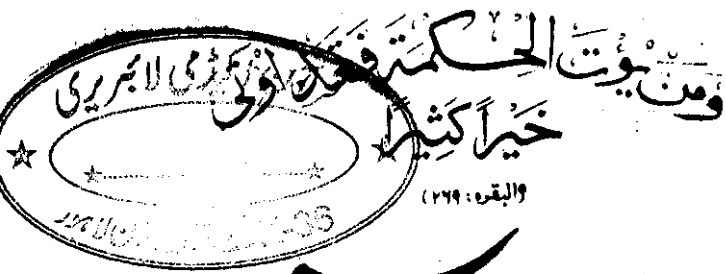 وَمَن يُؤْتَ الْحِكْمَةَ فَقَدْ أُوتِيَ
خَيْرًا كَثِيرًا
(البقره: ۲۶۹)
لائبریری
36